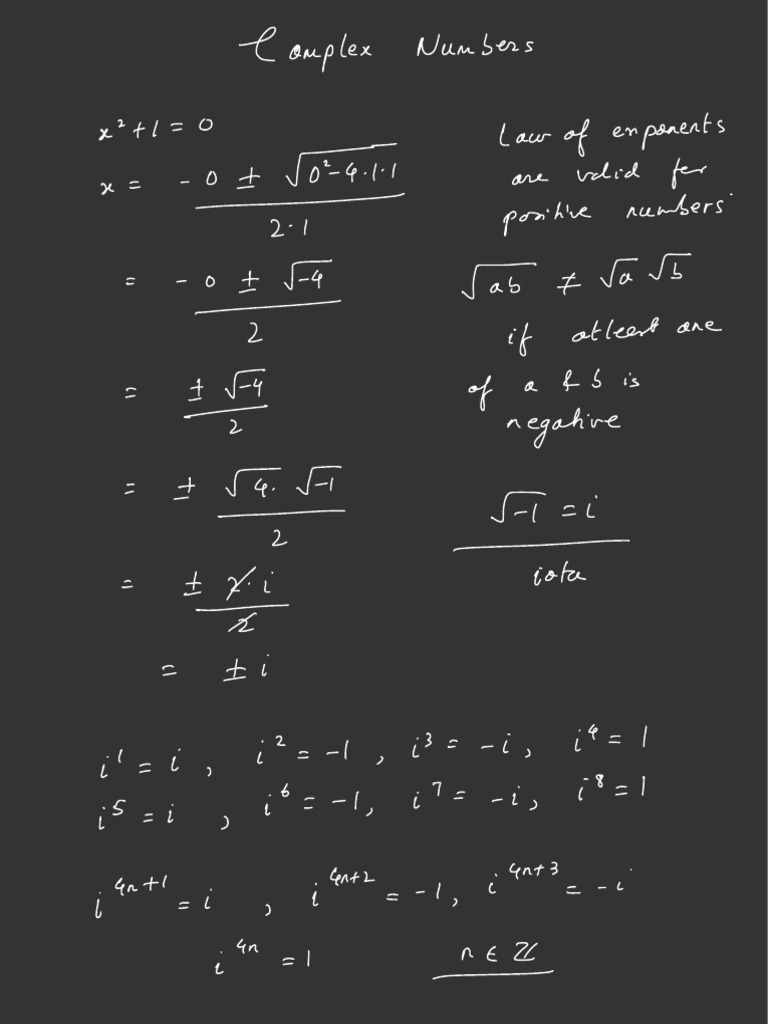 Complex Numbers
x² + 1 = 0
x = -0 ± √(0² - 4·1·1) / 2·1
= -0 ± √-4 / 2
= ± √-4 / 2
= ± √4· √-1 / 2
= ± 2· i / 2
= ± i
Law of exponents
are valid for
positive numbers
√ab ≠ √a √b
if atleast one
of a & b is
negative
√-1 = i
iota
i¹ = i , i² = -1 , i³ = -i , i⁴ = 1
i⁵ = i , i⁶ = -1, i⁷ = -i, i⁸ = 1
i⁴ⁿ⁺¹ = i , i⁴ⁿ⁺² = -1, i⁴ⁿ⁺³ = -i
i⁴ⁿ = 1 n ∈ ℤ